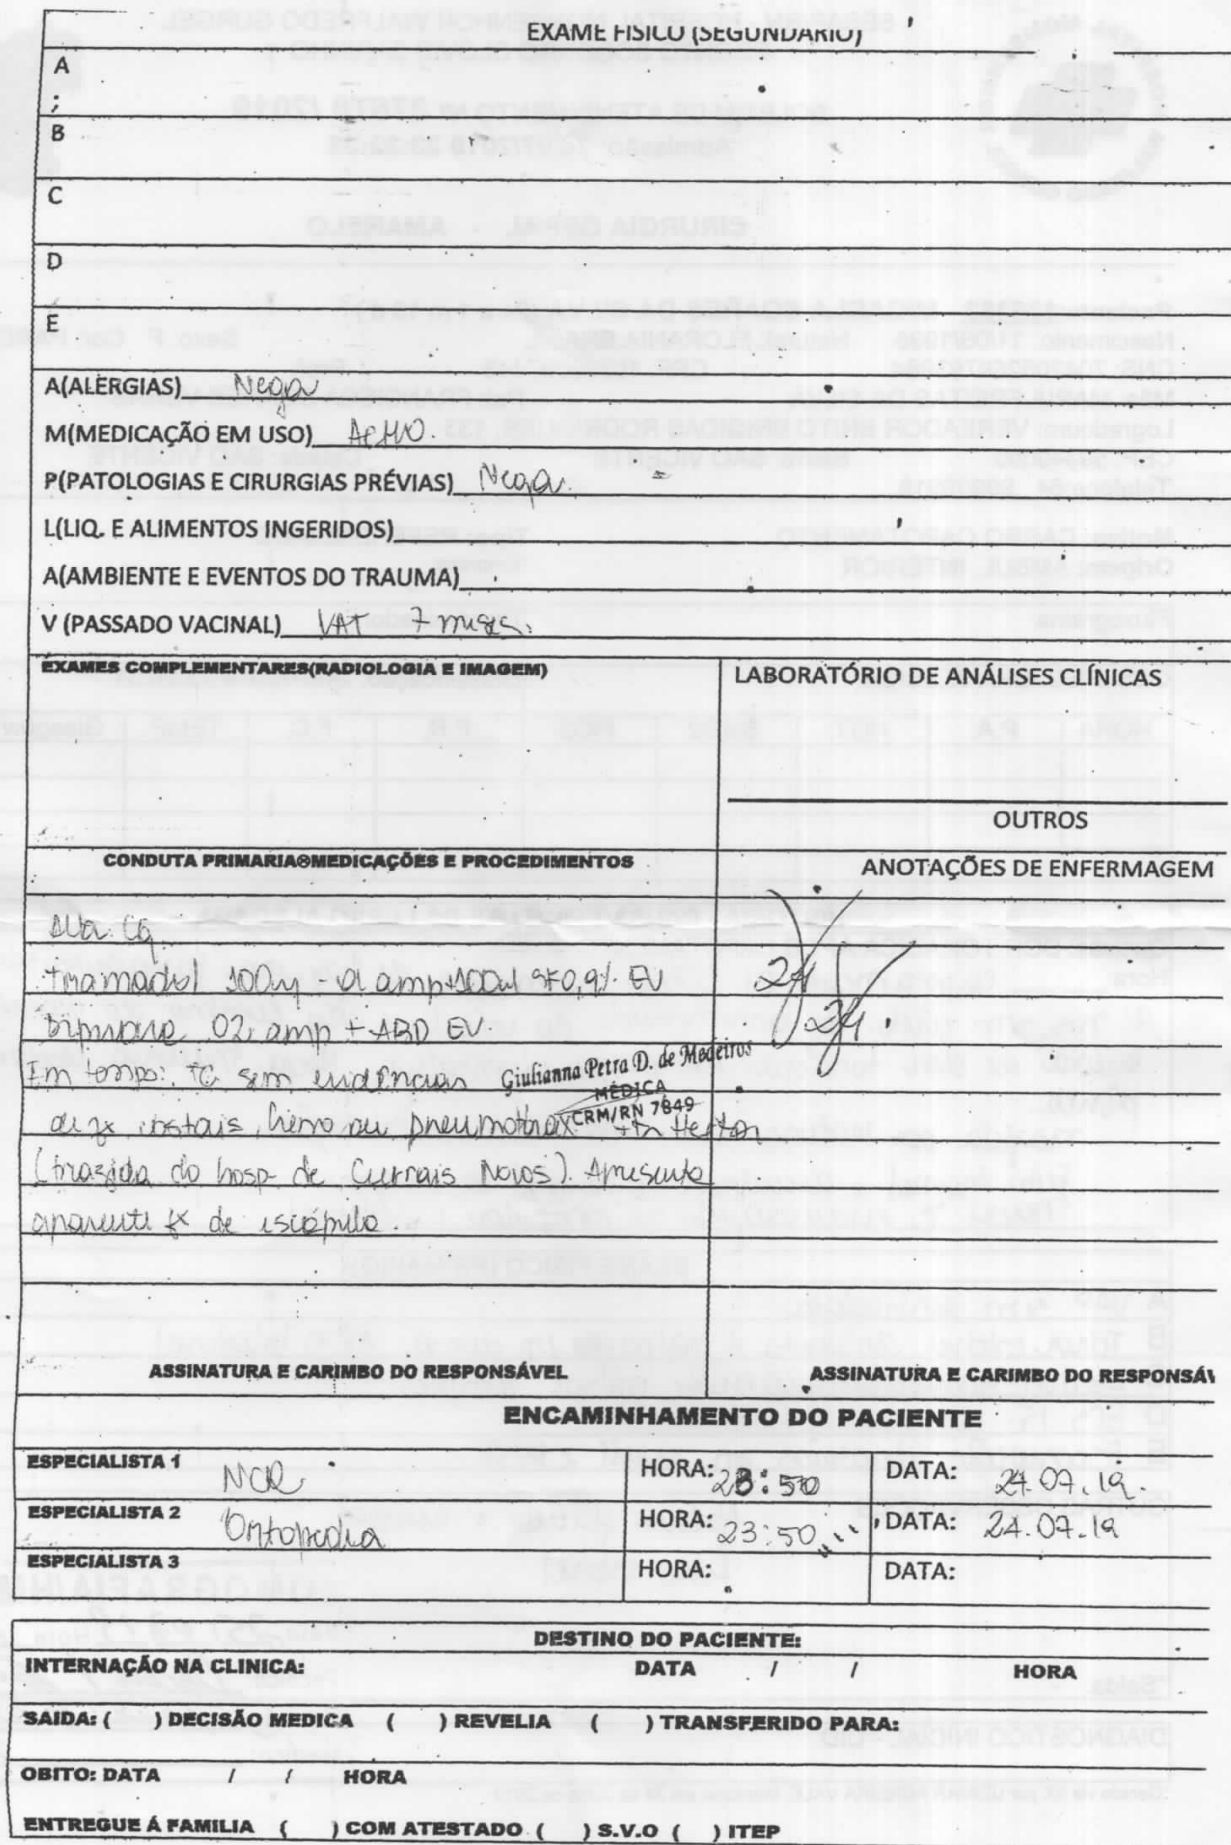 EXAME FISICO (SEGUNDARIO)
A
;
B
C
D
E
A(ALERGIAS) Nega
M(MEDICAÇÃO EM USO) ACHO.
P(PATOLOGIAS E CIRURGIAS PRÉVIAS) Nega.
L(LIQ. E ALIMENTOS INGERIDOS)
A(AMBIENTE E EVENTOS DO TRAUMA)
V (PASSADO VACINAL) VAT 7 meses.
EXAMES COMPLEMENTARES(RADIOLOGIA E IMAGEM)
LABORATÓRIO DE ANÁLISES CLÍNICAS
OUTROS
CONDUTA PRIMARIA®MEDICAÇÕES E PROCEDIMENTOS
ANOTAÇÕES DE ENFERMAGEM
Alta CG
Tramadol 100mg - 01 amp+100ml SF0,9% EV
24
Dipirona 02 amp + ABD EV.
24.
Em tempo: TC sem evidências
Giulianna Petra D. de Medeiros
MÉDICA
CRM/RN 7849
de fx costais, hemo ou pneumotórax
(trazida do hosp. de Currais Novos). Apresenta
aparente fx de escápula.
ASSINATURA E CARIMBO DO RESPONSÁVEL
ASSINATURA E CARIMBO DO RESPONSÁV
ENCAMINHAMENTO DO PACIENTE
ESPECIALISTA 1 NCR HORA: 23:50 DATA: 24.07.19.
ESPECIALISTA 2 Ortopedia HORA: 23:50 DATA: 24.07.19
ESPECIALISTA 3 HORA: DATA:
DESTINO DO PACIENTE:
INTERNAÇÃO NA CLINICA: DATA / / HORA
SAIDA: ( ) DECISÃO MEDICA ( ) REVELIA ( ) TRANSFERIDO PARA:
OBITO: DATA / / HORA
ENTREGUE Á FAMILIA ( ) COM ATESTADO ( ) S.V.O ( ) ITEP